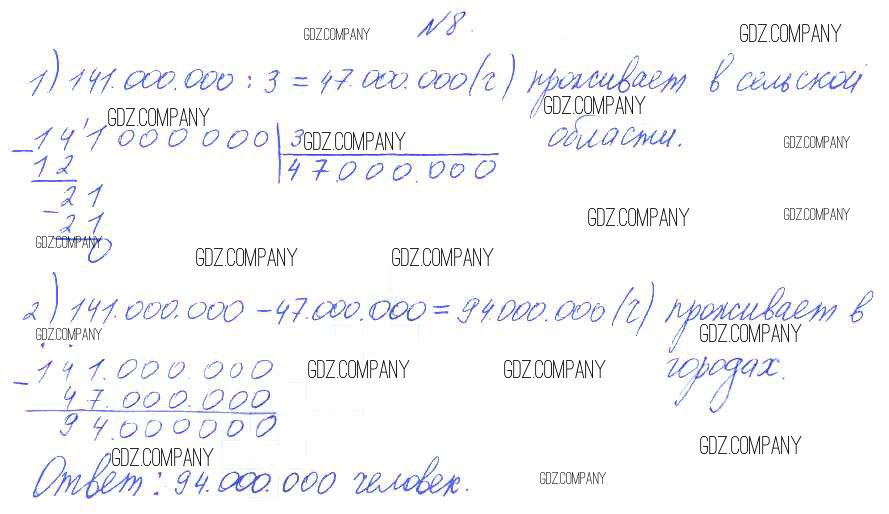 №8.
GDZ.COMPANY GDZ.COMPANY
1) 141.000.000 : 3 = 47.000.000 (ч) проживает в сельской
GDZ.COMPANY GDZ.COMPANY
141000000 3 области.
GDZ.COMPANY GDZ.COMPANY
- 12 47.000.000
21
- 21 GDZ.COMPANY GDZ.COMPANY
GDZ.COMPANY 0 GDZ.COMPANY GDZ.COMPANY
2) 141.000.000 - 47.000.000 = 94.000.000 (ч) проживает в
GDZ.COMPANY GDZ.COMPANY
- 141.000.000 GDZ.COMPANY GDZ.COMPANY городах.
47.000.000
94.000000
GDZ.COMPANY GDZ.COMPANY
Ответ: 94.000.000 человек. GDZ.COMPANY